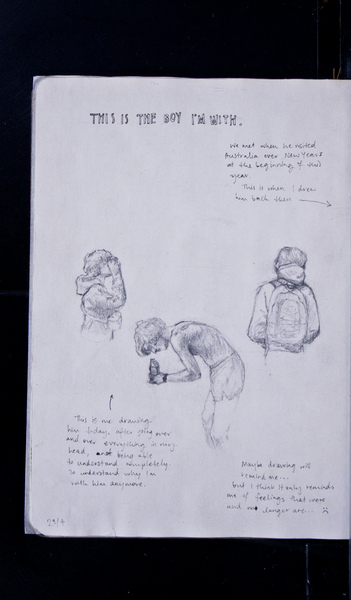 THIS IS THE BOY I'M WITH.
We met when he visited
Australia over New Years
at the beginning of this
year.
This is when I drew
him back then
This is me drawing
him today, after going over
and over everything in my
head, and not being able
to understand completely.
To understand why I'm
with him anymore.
Maybe drawing will
remind me...
but I think it only reminds
me of feelings that were
and no longer are... :(
29/4